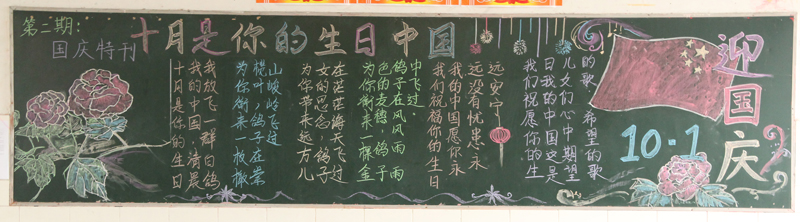 第二期:
国庆特刊
十月是你的生日中国
十月是你的生日
我的中国,清晨
我放飞一群白鸽
为你衔来一枚橄
榄叶,鸽子在崇
山峻岭飞过
为你带来远方儿
女的思念,鸽子
在茫茫海天飞过
为你衔来一棵金
色的麦穗,鸽子
鸽子在风风雨雨
中飞过,
我们祝福你的生日
我的中国愿你永
远没有忧患,永
远安宁
我们祝愿你的生
日我的中国这是
儿女们心中期望
的歌,希望的歌
10·1
迎国庆